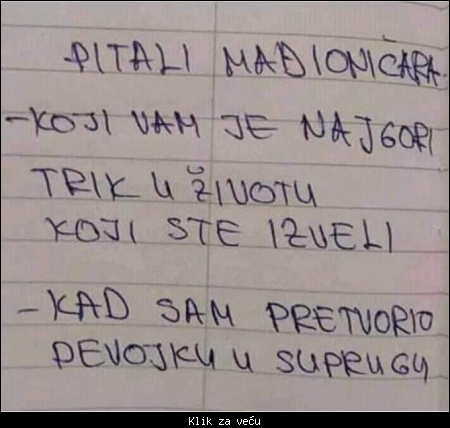 PITALI MAĐIONIČARA
-KOJI VAM JE NAJGORI
TRIK U ŽIVOTU
KOJI STE IZVELI
-KAD SAM PRETVORIO
DEVOJKU U SUPRUGU
Klik za veću